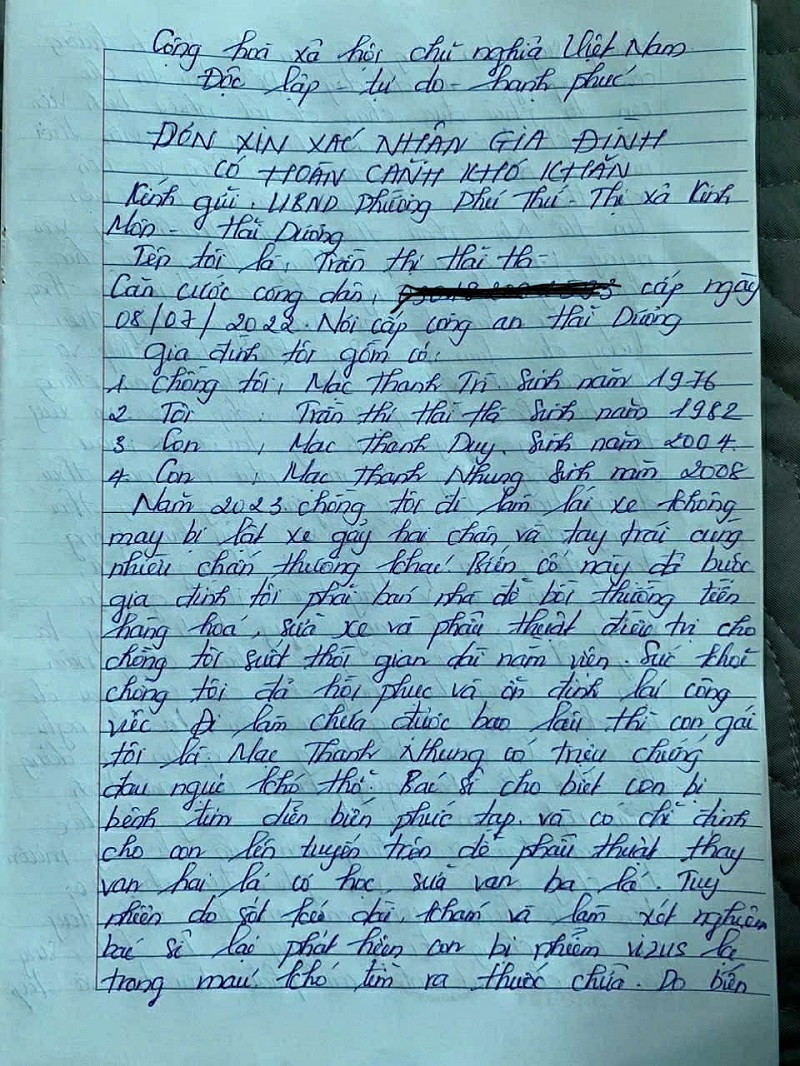 Cộng hoà xã hội chủ nghĩa Việt Nam
Độc lập - tự do - hạnh phúc
ĐƠN XIN XÁC NHẬN GIA ĐÌNH
CÓ HOÀN CẢNH KHÓ KHĂN
Kính gửi. UBND phường Phú Thứ - Thị xã Kinh
Môn - Hải Dương
Tên tôi là, Trần thị Hải Hà -
Căn cước công dân, cấp ngày
08/07/2022. Nơi cấp công an Hải Dương
Gia đình tôi gồm có:
1 Chồng tôi, Mạc Thanh Trì. Sinh năm 1976
2 Tôi : Trần thị Hải Hà Sinh năm 1982
3 Con , Mạc Thanh Duy. Sinh năm 2004.
4. Con , Mạc Thanh Nhung Sinh năm 2008
Năm 2023 chồng tôi đi làm lái xe không
may bị lật xe gãy hai chân và tay trái cùng
nhiều chấn thương khác. Biến cố này đã buộc
gia đình tôi phải bán nhà để bồi thường tiền
hàng hoá, sửa xe và phẫu thuật điều trị cho
chồng tôi suốt thời gian dài nằm viện. Sức khoẻ
chồng tôi đã hồi phục và ổn định lại công
việc. Đi làm chưa được bao lâu thì con gái
tôi là. Mạc Thanh Nhung có triệu chứng
đau ngực khó thở. Bác sĩ cho biết con bị
bệnh tim diễn biến phức tạp. và có chỉ định
cho con lên tuyến trên để phẫu thuật thay
van hai lá cơ học, sửa van ba lá. Tuy
nhiên do sốt kéo dài, khám và làm xét nghiệm
bác sĩ lại phát hiện con bị nhiễm vizus lạ
trong máu khó tìm ra thuốc chữa. Do biến